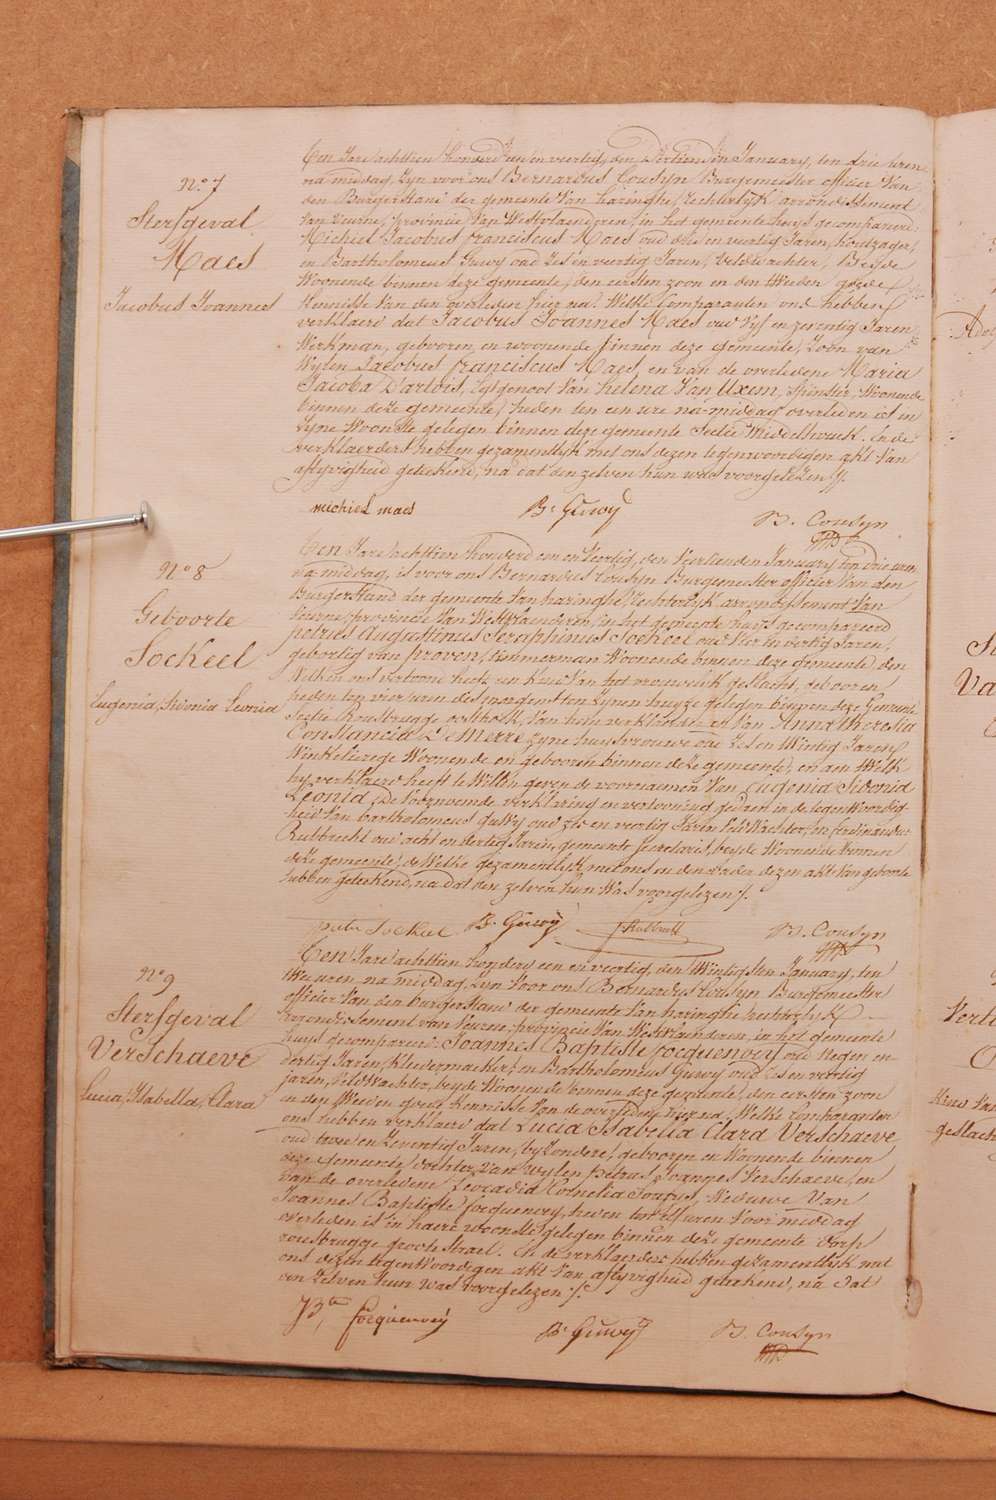 N.o 7
Sterfgeval
Maes
Jacobus Joannes
Ten Jare achttien honderd een en veertig, den dertienden January, ten drie uren
na middag, Zyn voor ons Bernardus Cousyn Burgemeester officier Van
den Burgerstand der gemeente Van haringhe, rechterlyk arrondissement
Van Veurne, provincie Van Westvlaenderen, in het gemeente huys gecompareerd
Michiel Jacobus franciscus Maes oud drie en veertig Jaren, houtzager,
en Bartholomeus Guwy oud Zes en veertig Jaren, Veldwachter, Beyde
Woonende binnen deze gemeente, den eersten zoon en den tweeden goede
Kennisse Van den overleden hier na, Welke Comparanten ons hebben
verklaerd dat Jacobus Joannes Maes oud Vyf en zeventig Jaren
Werkman, geboren en woonende binnen deze gemeente, Zoon van
Wylen Jacobus franciscus Maes, en van de overledene Maria
Jacoba D'artois, Echtgenoot Van helena Van Uxem, Spinster, Woonende
binnen deze gemeente, heden ten een ure na-middag overleden is in
Zyne Woonste gelegen binnen deze gemeente Sectie Middelhouck. En de
verklaerders hebben gezamentlyk met ons dezen tegenwoordigen akt Van
aflyvigheid geteekend, na dat den zelven hun was voorgelezen ./.
michiel maes B. Guwy B. Cousyn
N.o 8
Geboorte
Sockeel
Eugenia, Sidonia Leonia
Ten Jare achttien honderd een en Veertig, den Veertienden January ten drie uren
na-middag, is voor ons Bernardus Cousyn Burgemeester officier Van den
Burgerstand der gemeente Van haringhe, rechterlyk arrondissement Van
Veurne, provincie Van Westvlaenderen, in het gemeente huys gecompareerd
petrus Augustinus Seraphinus Sockeel oud Vier en veertig Jaren,
geboortig van proven, timmerman Woonende binnen deze gemeente, den
Welken ons vertoond heeft een kind Van het vrouwelyk geslacht, geboren
heden ten vier uren des morgens ten Zynen huyze gelegen binnen deze Gemeente
Sectie Rousbrugge oosthoek, Van hem verklaerder en Van Anna theresia
Constancia De Merre zyne huysvrouwe oud Zes en twintig Jaren
Winkelierege Woonende en geboren binnen deze gemeente, en aen Welk
hy verklaerd heeft te Willen geven de voornaemen Van Eugenia Sidonia
Leonia, De Voornoemde verklaring en vertooning gedaen in de tegenwoordig
heid Van bartholomeus Guwy oud zes en veertig Jaren Veld Wachter, en ferdinandus
Rubbrecht oud acht en dertig Jaren, gemeente secretaris, beyde Woonende binnen
deze gemeente, de Welke gezamentlyk met ons en den Vader dezen akt Van geboorte
hebben geteekend, na dat den zelven hun Was voorgelezen ./.
pieter Sockeel B. Guwy f Rubbrecht B. Cousyn
N.o 9
Sterfgeval
Verschaeve
Lucia, Isabella, Clara
Ten Jare achttien honderd een en veertig, den twintigsten January, ten
twee uren, na middag, Zyn Voor ons Bernardus Cousyn Burgemeester
officier Van den burgerstand der gemeente Van haringhe rechterlyk
arrondissement van Veurne, provincie Van Westvlaenderen, in het gemeente
huys gecompareerd: Joannes Baptiste focquenoey oud Negen en
dertig Jaren, Kleedermaeker, en Bartholomeus Guwy oud zes en veertig
jaren, Veld Wachter, beyde Woonende binnen deze gemeente, den eersten zoon
en den tweeden goede Kennisse Van de overledene hier na, Welke Comparanten
ons hebben verklaerd dat Lucia Isabella Clara Verschaeve
oud twee en Zeventig Jaren, byzondere, geboren en Woonende binnen
deze gemeente, dochter Van wylen petrus Joannes Verschaeve, en
van de overledene Leocadia Cornelia Weduwe Van
Joannes Baptiste focquenoey, heden ten elf uren Voor middag
overleden is in haere woonste gelegen binnen deze gemeente dorp
rousbrugge groote straet. En de verklaerders hebben gezamentlyk met
ons dezen tegenwoordigen akt Van aflyvigheid geteekend, na dat
den zelven hun was voorgelezen ./.
J Bte focquenoey B. Guwy B. Cousyn